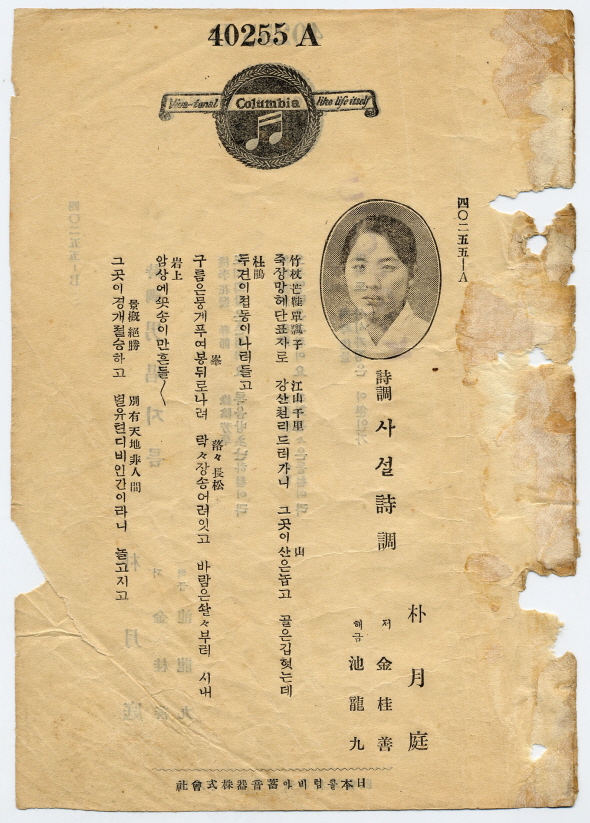 40255 A
Viva-tonal Columbia like life itself
四〇二五五—A
詩調 사설詩調
朴月庭
저 金桂善
해금 池龍九
竹杖芒鞋單瓢子 江山千里 山
죽장망혜단표자로 강산천리드러가니 그곳이산은놉고 골은깁헛는데
杜鵑
두견이접둥이나리들고
峯 落々長松
구름은뭉게푸여봉뒤로나려 락々장송어려잇고 바람은솰々부러 시내
岩上
암상에쏫송이만흔들〱
景槪絕勝 別有天地非人間
그곳이경개절승하고 별유텬디비인간이라니 놀고지고
日本콜럼비아蓄音器株式會社